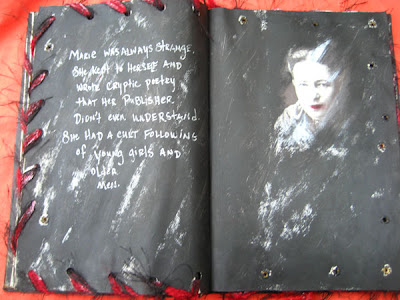 Marie was always strange,
She kept to herself and
wrote cryptic poetry
that her publisher
Didn't even understand.
She had a cult following
of young girls and
older
men.